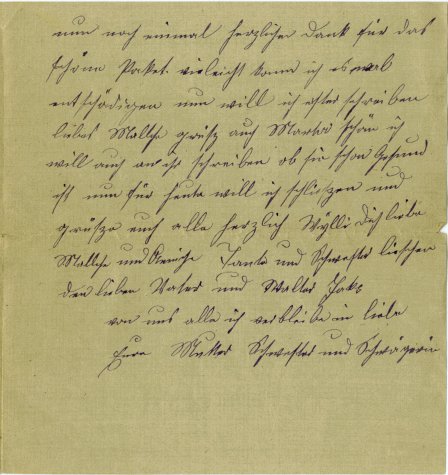 nun noch einmal herzlichen Dank für das
schöne Paket. vieleicht kann ich es mal
entschädigen nun will ich after schreiben
liebes grüsz auch Marta schön ich
will auch an ihr schreiben ob sie schon Gesund
ist nun für heute will ich schlieszen und
grüsze euch alle herzlich Dich liebe
und Tante und Schwester lieschen
den lieben Vater und Walter
von uns alle ich verbleibe in liebe
Eure Mutter Schwester und Schwägerin